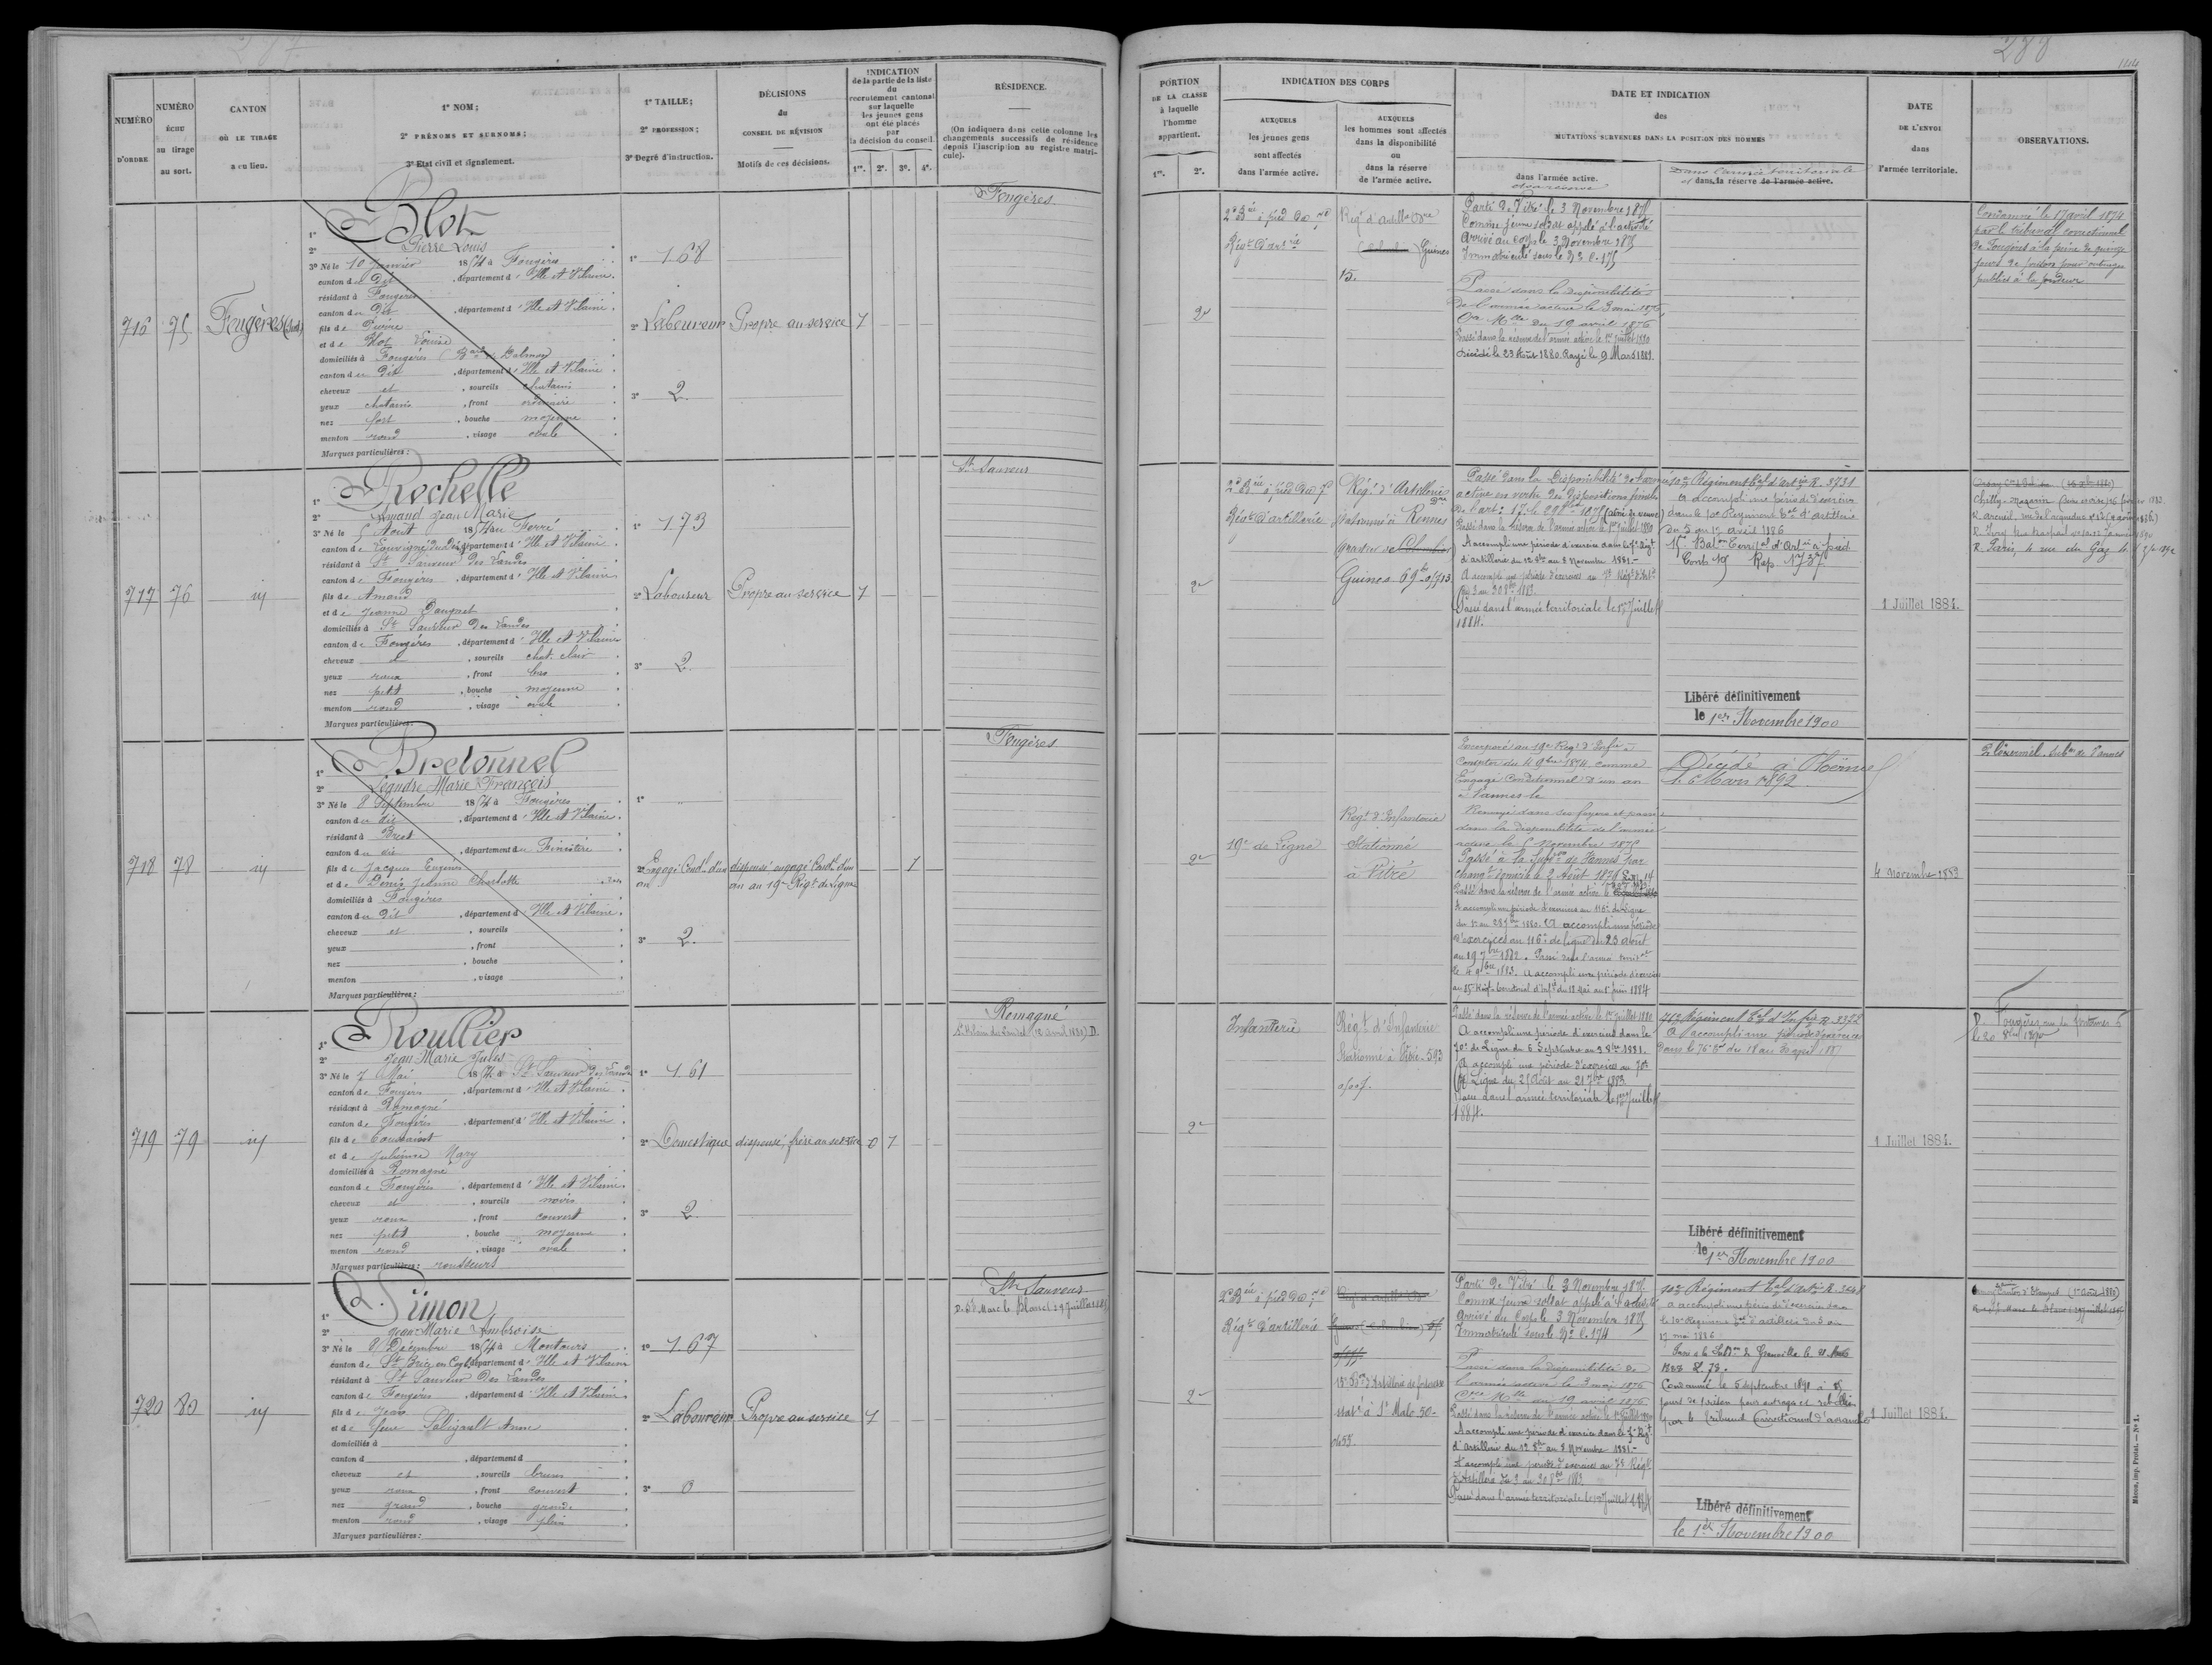 287
NUMÉRO D'ORDRE
NUMÉRO ÉCHU au tirage au sort.
CANTON OÙ LE TIRAGE a eu lieu.
1° NOM;
2° PRÉNOMS ET SURNOMS;
3° Etat civil et signalement.
1° TAILLE;
2° PROFESSION;
3° Degré d'instruction.
DÉCISIONS du CONSEIL DE RÉVISION
Motifs de ces décisions.
INDICATION de la partie de la liste du recrutement cantonal sur laquelle les jeunes gens ont été placés par la décision du conseil.
1re. 2e. 3e. 4e.
RÉSIDENCE.
(On indiquera dans cette colonne les changements successifs de résidence depuis l'inscription au registre matricule).
716
75
Fougères (Sud)
1° Blot
2° Pierre Louis
3° Né le 10 Janvier 1854 à Fougères
canton du dit, département d'Ille et Vilaine.
résidant à Fougères
canton du dit, département d'Ille et Vilaine.
fils de Pierre
et de Blot Louise
domiciliés à Fougères
canton du dit, département d'Ille et Vilaine.
cheveux et, sourcils chatains
yeux chatains, front ordinaire
nez fort, bouche moyenne
menton rond, visage ovale
Marques particulières:
1° 1.68
2° Laboureur
3° 2
Propre au service
1
Fougères
717
76
id
1° Rochelle
2° Amand Jean Marie
3° Né le 5 Aout 1854 au Ferré
canton de Louvigné du Dt, département d'Ille et Vilaine
résidant à St Sauveur des Landes
canton de Fougères, département d'Ille et Vilaine
fils de Amand
et de Jeanne
domiciliés à St Sauveur des Landes
canton de Fougères, département d'Ille et Vilaine
cheveux et, sourcils chat. clair
yeux roux, front bas
nez petit, bouche moyenne
menton rond, visage ovale
Marques particulières:
1° 1.73
2° Laboureur
3° 2
Propre au service
1
St Sauveur
718
78
id
1° Bretonnel
2° Léandre Marie François
3° Né le 8 Septembre 1854 à Fougères
canton du dit, département d'Ille et Vilaine.
résidant à Brest
canton du dit, département du Finistère
fils de Jacques Eugène
et de Denis Jeanne Charlotte
domiciliés à Fougères
canton du dit, département d'Ille et Vilaine.
cheveux et, sourcils
yeux, front
nez, bouche
menton, visage
Marques particulières:
2° Engagé Condl d'un an
3° 2.
dispensé engagé Condl d'un an au 19e Régt de ligne
1
Fougères
719
79
id
1° Roullier
2° Jean Marie Jules
3° Né le 7 Mai 1854 à St Sauveur des Landes
canton de Fougères, département d'Ille et Vilaine
résidant à Romagné
canton de Fougères, département d'Ille et Vilaine
fils de Toussaint
et de Julienne Mary
domiciliés à Romagné
canton de Fougères, département d'Ille et Vilaine.
cheveux et, sourcils noirs
yeux roux, front couvert
nez petit, bouche moyenne
menton rond, visage ovale
Marques particulières: rousseurs
1° 1.61
2° Domestique
3° 2
dispensé, frère au service
0 1
Romagné
720
80
id
1° Simon
2° Jean Marie Ambroise
3° Né le 9 Décembre 1854 à Montours
canton de St Brice en Cogl., département d'Ille et Vilaine
résidant à St Sauveur des Landes
canton de Fougères, département d'Ille et Vilaine
fils de Jean
et de feue Anne
domiciliés à
canton d, département d
cheveux et, sourcils bruns
yeux roux, front couvert
nez grand, bouche grande
menton rond, visage plein
Marques particulières:
1° 1.67
2° Laboureur
3° 0
Propre au service
1
St Sauveur
288
144
PORTION DE LA CLASSE à laquelle l'homme appartient.
1re. 2e.
INDICATION DES CORPS
AUXQUELS les jeunes gens sont affectés dans l'armée active.
AUXQUELS les hommes sont affectés dans la disponibilité ou dans la réserve de l'armée active.
DATE ET INDICATION des MUTATIONS SURVENUES DANS LA POSITION DES HOMMES
dans l'armée active.
ou réserve
Dans l'armée territoriale
et dans la réserve de l'armée active.
DATE DE L'ENVOI dans l'armée territoriale.
OBSERVATIONS.
2e
2e Bie à pied du 7e
Régt d'artie
Guines
15.
Parti de Vitré le 3 Novembre 1875
Comme jeune soldat appelé à l'activité
Arrivé au corps le 3 Novembre 1875
Immatriculé sous le No C. 175
Passé dans la disponibilité
de l'armée active le 3 mai 1876
Cre Mlle du 19 avril 1876
Passé dans la réserve de l'armée active le 1er juillet 1880
Décédé le 23 Août 1880. Rayé le 9 Mars 1881.
Condamné le 17 avril 1874
par le tribunal correctionnel
de Fougères à la peine de quinze
jours de prison pour outrage
public à la pudeur
2e
2e Bie à pied du 7e
Régt d'artillerie
Régt d'Artillerie
stationné à Rennes
Guines
Passé dans la disponibilité de l'armée
active en vertu des dispositions
Passé dans la réserve de l'armée active le 1er juillet 1880
A accompli une période d'exercices dans le 7e Régt
d'artillerie du 12 8bre au 8 Novembre 1881.-
A accompli une période d'exercices au 7e Régt d'Artie
du 3 au 30 8bre 1883.
Passé dans l'armée territoriale le 1er Juillet
1884.
10e Régiment tal d'artie R. 3731
A accompli une période d'exercices
dans le 10e Régiment tal d'artillerie
du 5 au 17 avril 1886
Libéré définitivement
le 1er Novembre 1900
1 Juillet 1884.
2e
19e de Ligne
Régt d'Infanterie
Stationné
à Vitré
Incorporé au 19e Régt d'Infie à
compter du 4 9bre 1874 comme
Engagé Conditionnel d'un an
à Vannes le
Renvoyé dans ses foyers et passé
dans la disponibilité de l'armée
active le 5 Novembre 1875
Passé à la Subdon de Vannes par
A accompli une période d'exercices au 116e de ligne
A accompli une période
d'exercices au 116e de ligne du 23 août
au 19 7bre 1882. Passé dans l'armée territle
le 4 9bre 1883. A accompli une période d'exercices
Décédé à Ploërmel
le 6 Mars 1892
4 novembre 1883
Ploërmel. Subon de Vannes
2e
Infanterie
Régt d'Infanterie
Stationné à Vitré. 593
Passé dans la réserve de l'armée active le 1er juillet 1880.
A accompli une période d'exercices dans le
70e de Ligne du 6 Septembre au 3 8bre 1881.
A accompli une période d'exercices au 70e
de Ligne du 25 Août au 21 7bre 1883.
Passé dans l'armée territoriale le 1er Juillet
1884.
76e Régiment tal d'Infie R. 3372
A accompli une période d'exercices
dans le 76e tal du 18 au 30 avril 1887
Libéré définitivement
le 1er Novembre 1900
1 Juillet 1884.
2e
2e Bie à pied du 7e
Régt d'artillerie
15e Bon d'Artillerie de forteresse
statné à St Malo. 50-
Parti de Vitré le 3 Novembre 1875.
Comme jeune soldat appelé à l'activité
Arrivé au Corps le 3 Novembre 1875
Immatriculé sous le No C. 174
Passé dans la disponibilité de
l'armée active le 3 mai 1876
Cre Mlle du 19 avril 1876
Passé dans la réserve de l'armée active le 1er juillet 1880
A accompli une période d'exercices dans le 7e Régt
d'Artillerie du 12 8bre au 8 Novembre 1881.-
A accompli une période d'exercices au 7e Régt
d'Artillerie du 3 au 30 8bre 1883
Passé dans l'armée territoriale le 1er Juillet 1884
10e Régiment tal d'artie
A accompli une période d'exercices dans
le 10e Régiment tal d'artillerie du 5 au
17 mai 1886
Condamné le 5 septembre 1891 à
jours de prison pour outrage et rébellion
par le Tribunal Correctionnel d'Avranches
Libéré définitivement
le 1er Novembre 1900
1 Juillet 1884.
Mâcon, imp. Protat. — No 1.